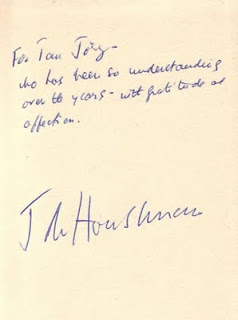 For Ian Joy –
who has been so understanding
over the years – with gratitude and
affection.
J de Houshman